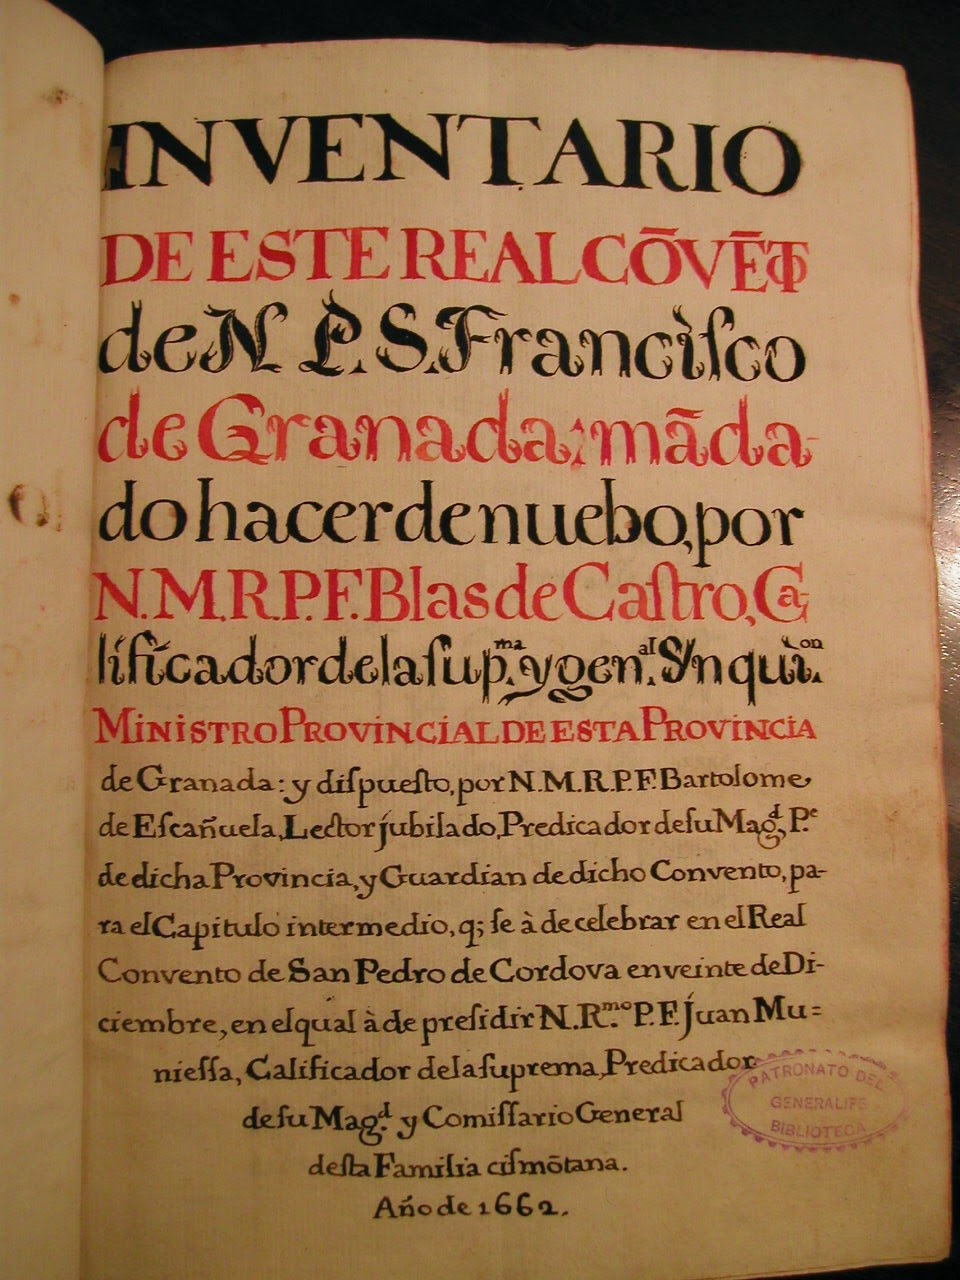 INVENTARIO
DE ESTE REAL CŌVĒTO
de N. P. S. Franciſco
de Granada; mãda-
do hacer de nuebo, por
N. M. R. P. F. Blas de Caſtro, Ca-
lificador de la ſup.ᵐᵃ y gen.ᵃˡ Ynqui.ᵒⁿ
MINISTRO PROVINCIAL DE ESTA PROVINCIA
de Granada: y diſpueſto, por N. M. R. P. F. Bartolome
de Eſcañuela, Lector jubilado, Predicador de ſu Mag.ᵈ, P.ᵉ
de dicha Provincia, y Guardian de dicho Convento, pa-
ra el Capitulo intermedio, q; ſe à de celebrar en el Real
Convento de San Pedro de Cordova en veinte de Di-
ciembre, en el qual à de preſidir N. R.ᵐᵒ P. F. Juan Mu=
nieſſa, Calificador de la ſuprema, Predicador
de ſu Mag.ᵈ y Comiſſario General
deſta Familia ciſmõtana.
Año de 1662.
PATRONATO DEL
GENERALIFE
BIBLIOTECA